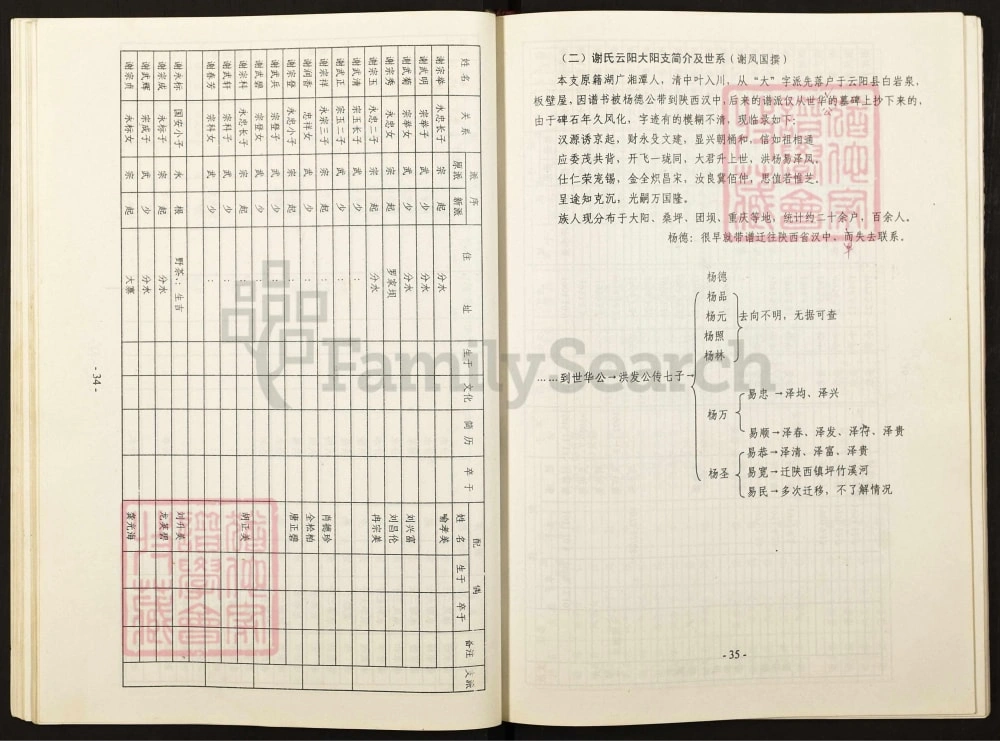 姓名 关系 派序 原派 新派 住址 生于 文化 简历 卒于 配偶 姓名 生于 卒于 备注 支派
谢宗举 永忠长子 宗 起 分水 喻孝美
谢武明 宗举子 武 少 分水
谢武菊 宗举女 武 少 分水 刘兴富
谢宗秀 永忠女 宗 起 罗家坝 刘昌伦
谢宗玉 永忠二子 宗 起 分水 冉宗美
谢武清 宗玉长子 武 少 :
谢武正 宗玉二子 武 少 :
谢宗祥 永宗三子 宗 起 : 肖德珍
谢润香 忠祥女 武 少 : 全松柏
谢宗登 永忠小子 宗 起 : 唐正碧
谢武兵 宗登子 武 少 :
谢武碧 宗登女 武 少 :
谢宗科 永忠长子 宗 起 : 胡正美
谢武轩 宗科子 武 少 :
谢春芳 宗科女 武 少 :
谢永标 国安小子 永 根 野茶:生吉
谢宗成 永标子 宗 起 分水 刘升美
谢武辉 宗成子 武 少 分水 尤英碧
谢宗贞 永标女 宗 起 大寨 龚光海
- 34 -
（二）谢氏云阳大阳支简介及世系（谢凤国撰）
本支原籍湖广湘潭人，清中叶入川，从“大”字派先落户于云阳县白岩泉，
板壁屋，因谱书被杨德公带到陕西汉中，后来的谱派仅从世华的墓碑上抄下来的，
公
由于碑石年久风化，字迹有的模糊不清，现临录如下：
汉源诱京起，财水殳文建，显兴朝桶和，信如祖相通
应委茂共背，开飞一珑同，大君升上世，洪杨易泽凤，
仕仁荣宠锡，金全炽昌宋，汝良冀佰伸，思值若惟芝。
呈途知克沉，光嗣万国隆。
族人现分布于大阳、桑坪、团坝、重庆等地，统计约二十余户，百余人。
杨德：很早就带谱迁往陕西省汉中，而失去联系。
杨德
杨品
杨元 去向不明，无据可查
杨照
杨林
……到世华公→洪发公传七子→
易忠→泽均、泽兴
杨万
易顺→泽春、泽发、泽符、泽贵
易恭→泽清、泽富、泽贵
杨圣 易宽→迁陕西镇坪竹溪河
易民→多次迁移，不了解情况
- 35 -
FamilySearch